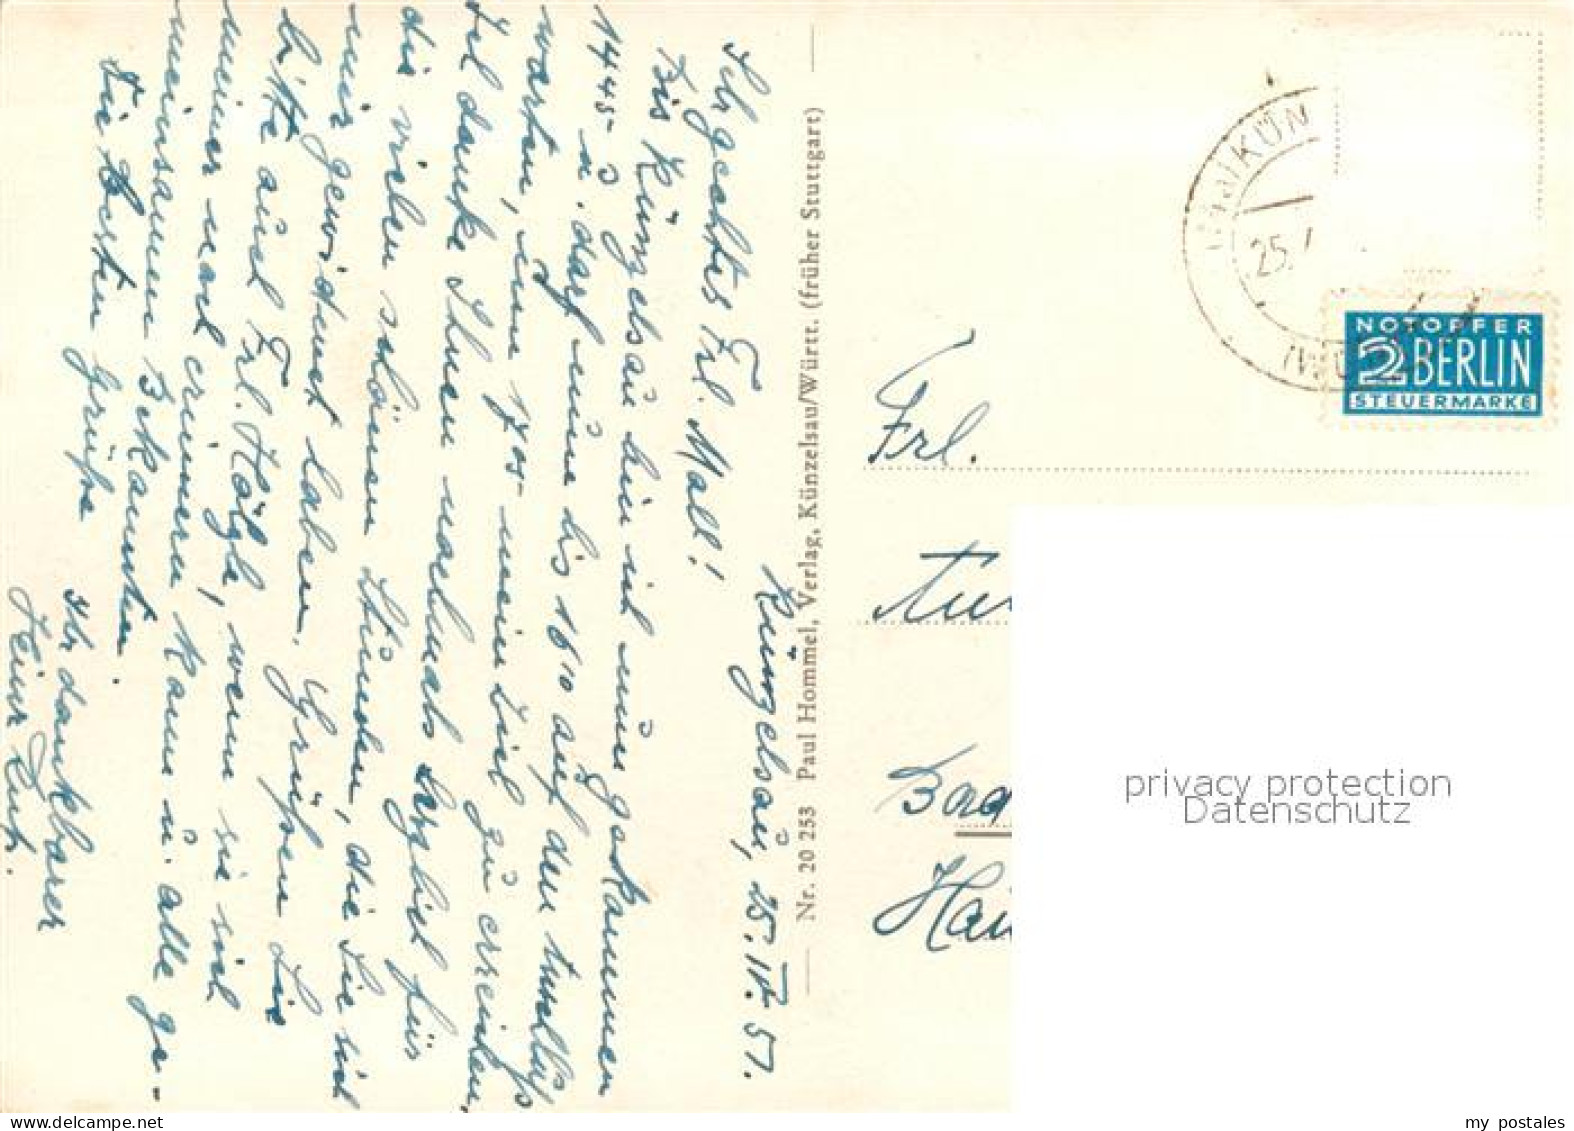 Künzelsau, 25. IV. 51.
Sehr geehrtes Frl. Mall!
Bis Künzelsau bin ich nun gekommen
1445 u. darf nun bis 1610 auf den Anschluß
warten, um 1705 mein Ziel zu erreichen.
Ich danke Ihnen nochmals herzlich für
die vielen schönen Stunden, die Sie sich
mir gewidmet haben. Grüßen Sie
bitte auch Frl. Hölzle, wenn sie sich
meiner noch erinnern kann u. alle ge-
meinsamen Bekannten.
Die besten Grüße
Ihr dankbarer
Nr. 20 253 Paul Hommel, Verlag, Künzelsau/Württ. (früher Stuttgart)
KÜN
25.
(WÜ
NOTOPFER
2 BERLIN
STEUERMARKE
Frl.
Bad
Hau
privacy protection
Datenschutz
my postales